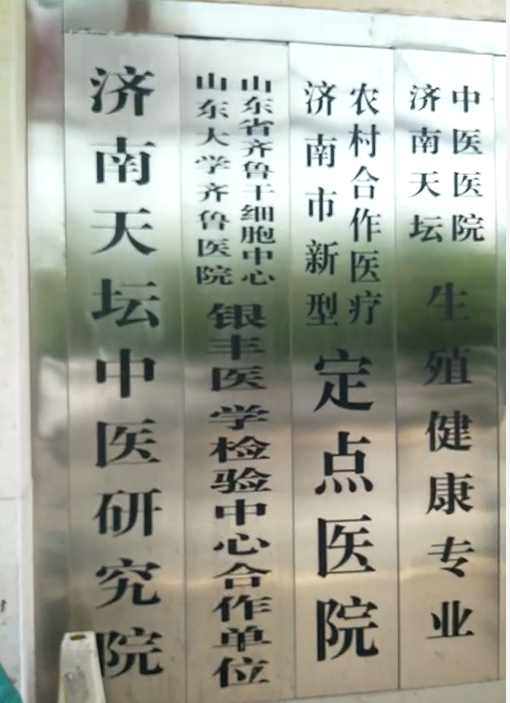 济南天坛中医研究院
山东大学齐鲁医院
山东省齐鲁干细胞中心
银丰医学检验中心合作单位
济南市新型
农村合作医疗
定点医院
济南天坛
中医医院
生殖健康专业